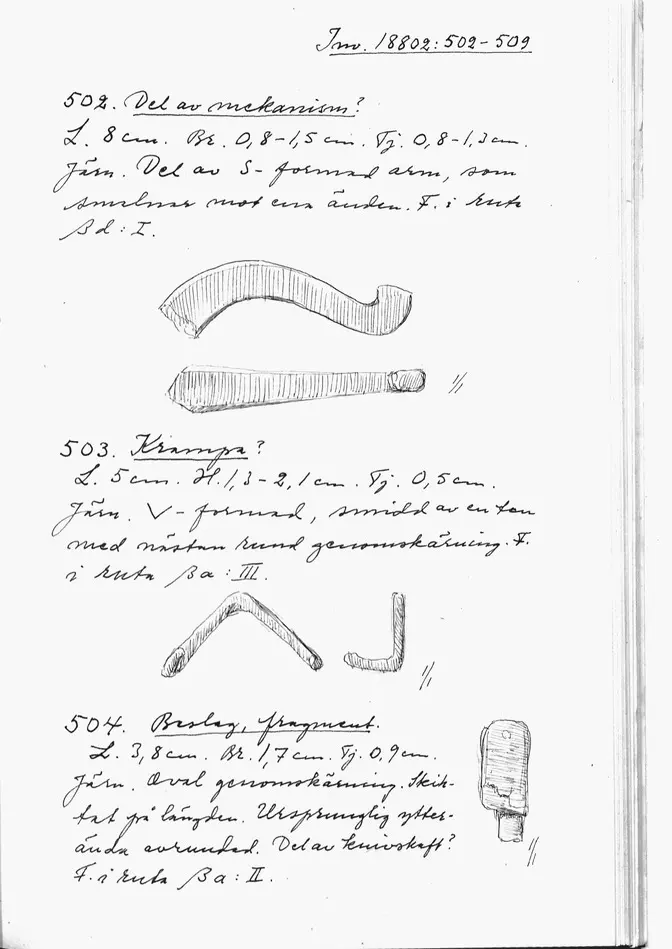 Inv. 18802:502-509
502. Del av mekanism?
L. 8 cm. Br. 0,8-1,5 cm. Tj. 0,8-1,3 cm.
Järn. Del av S-formad arm, som
smalnar mot ena änden. F. i ruta
βd: I.
1/1
503. Krampa?
L. 5 cm. H. 1,3-2,1 cm. Tj. 0,5 cm.
Järn. V-formad, smidd av en ten
med nästan rund genomskärning. F.
i ruta βa: III.
1/1
504. Beslag, fragment.
L. 3,8 cm. Br. 1,7 cm. Tj. 0,9 cm.
Järn. Oval genomskärning. Skik-
tat på längden. Ursprunglig ytter-
ända avrundad. Del av knivskaft?
F. i ruta βa: II.
1/1